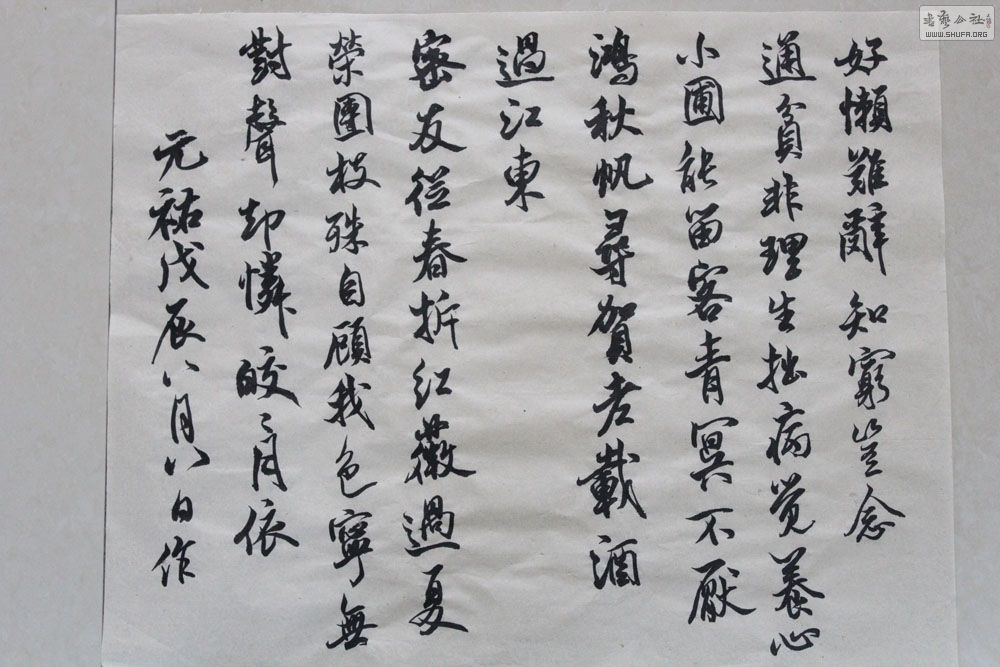 好懶難辭知窮豈念
通貧非理生拙病覺養心
小圃能留客青冥不厭
鴻秋帆尋賀老載酒
過江東
密友從春拆紅薇過夏
榮團枝殊自顧我色寧無
對聲却憐皎〻月依
元祐戊辰八月八日作
書藝公社
WWW.SHUFA.ORG